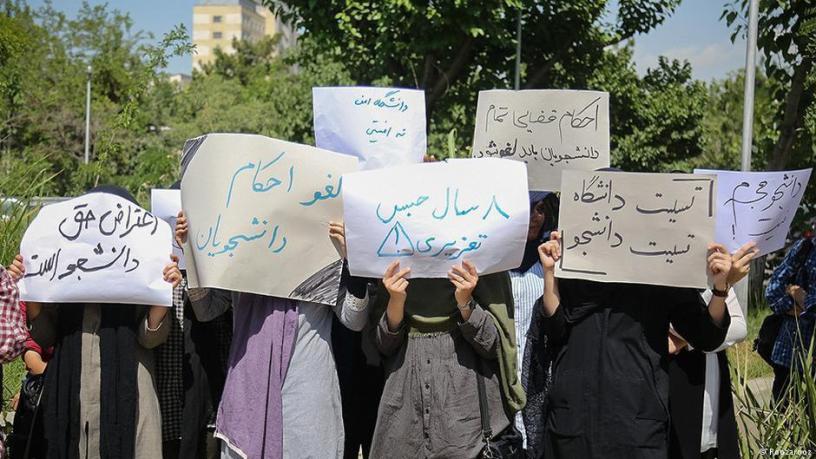 دانشگاه امن
نه امنیتی
احکام قضایی تمام
دانشجویان باید لغو شود
لغو احکام
دانشجویان
۸ سال حبس
تعزیری
تسلیت دانشگاه
تسلیت دانشجو
دانشجو مجرم
نیست!
اعتراض حق
دانشجو است